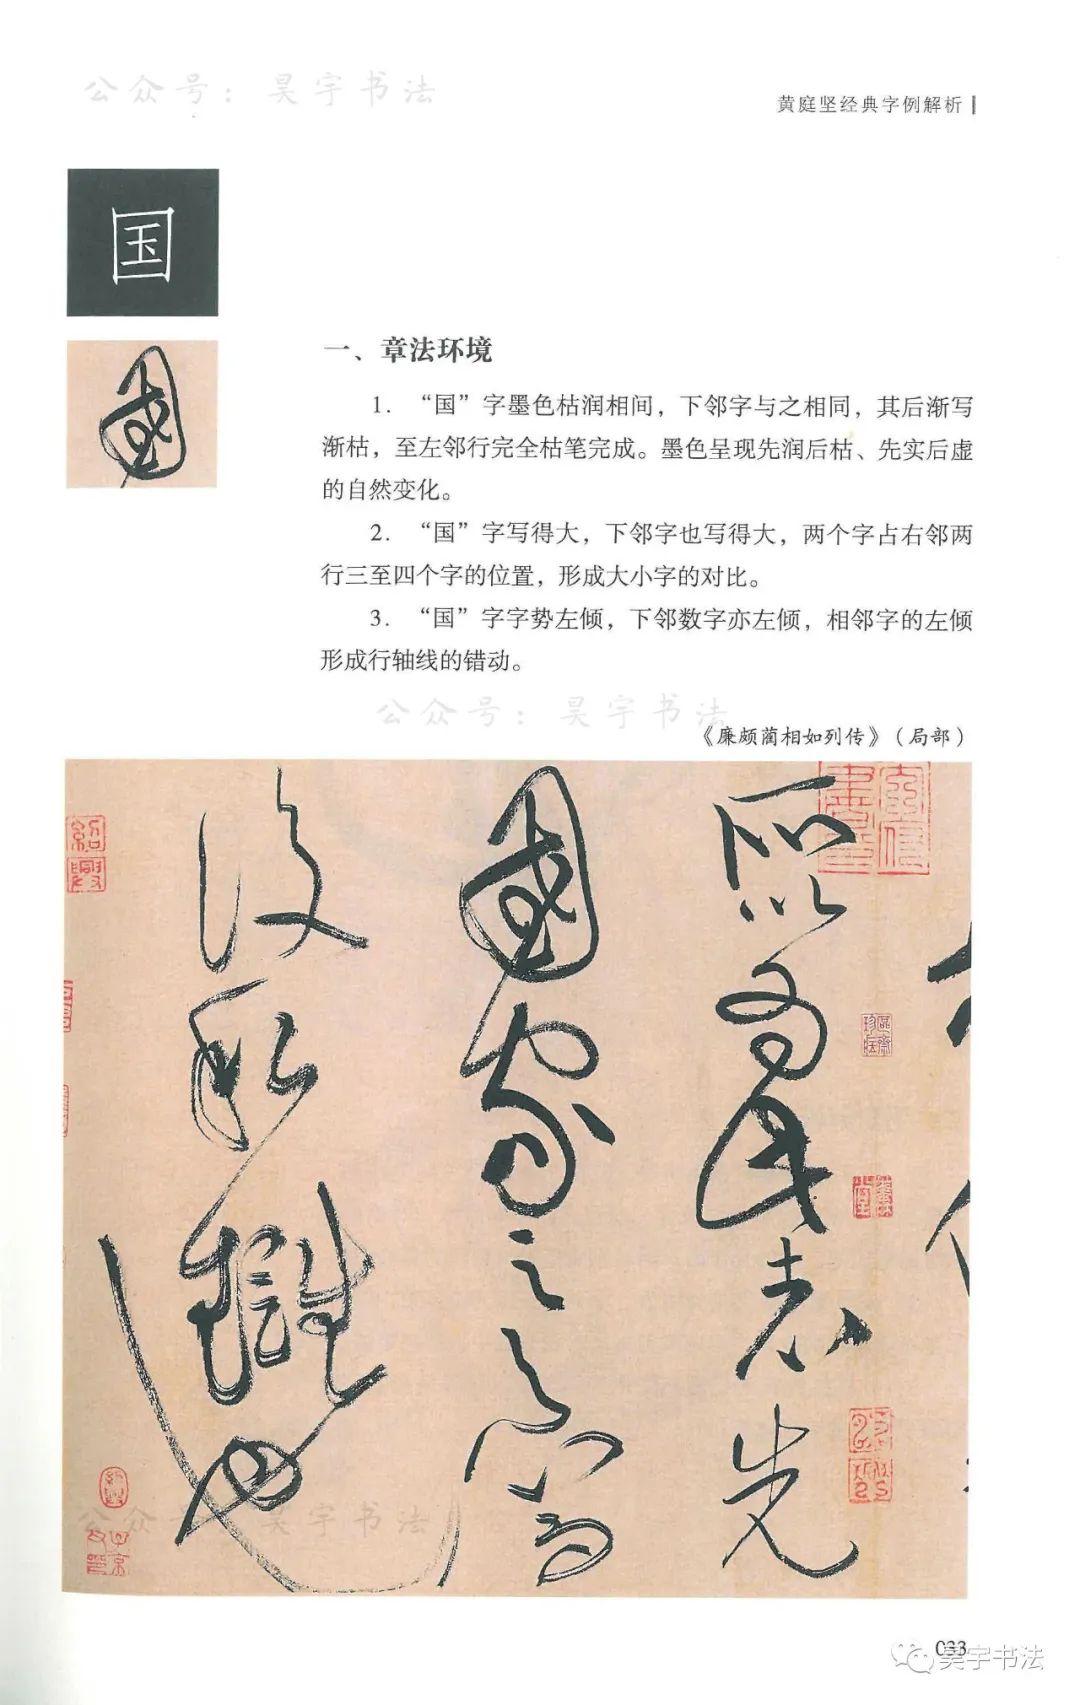 公众号：昊宇书法
黄庭坚经典字例解析
国
國
一、章法环境
1. “国”字墨色枯润相间，下邻字与之相同，其后渐写
渐枯，至左邻行完全枯笔完成。墨色呈现先润后枯、先实后虚
的自然变化。
2. “国”字写得大，下邻字也写得大，两个字占右邻两
行三至四个字的位置，形成大小字的对比。
3. “国”字字势左倾，下邻数字亦左倾，相邻字的左倾
形成行轴线的错动。
公众号：昊宇书法
《廉颇蔺相如列传》（局部）
所以為此者先
國家之急而
後私讎也
紹興
公众号：昊宇书法
033
昊宇书法